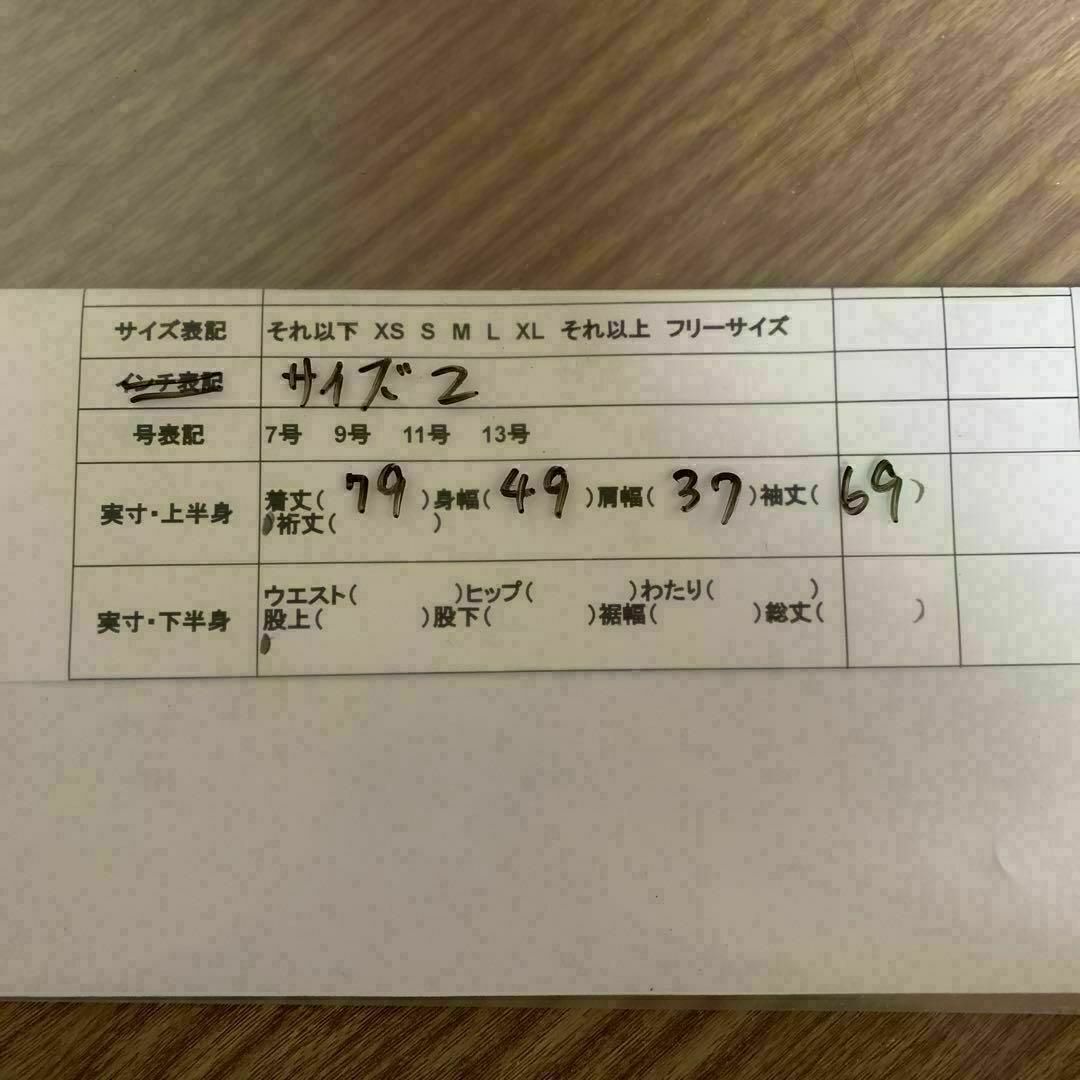 サイズ表記 それ以下 XS S M L XL それ以上 フリーサイズ
インチ表記 サイズ2
号表記 7号 9号 11号 13号
実寸・上半身 着丈( 79 )身幅( 49 )肩幅( 37 )袖丈( 69 )
裄丈( )
実寸・下半身 ウエスト( )ヒップ( )わたり( )
股上( )股下( )裾幅( )総丈( )